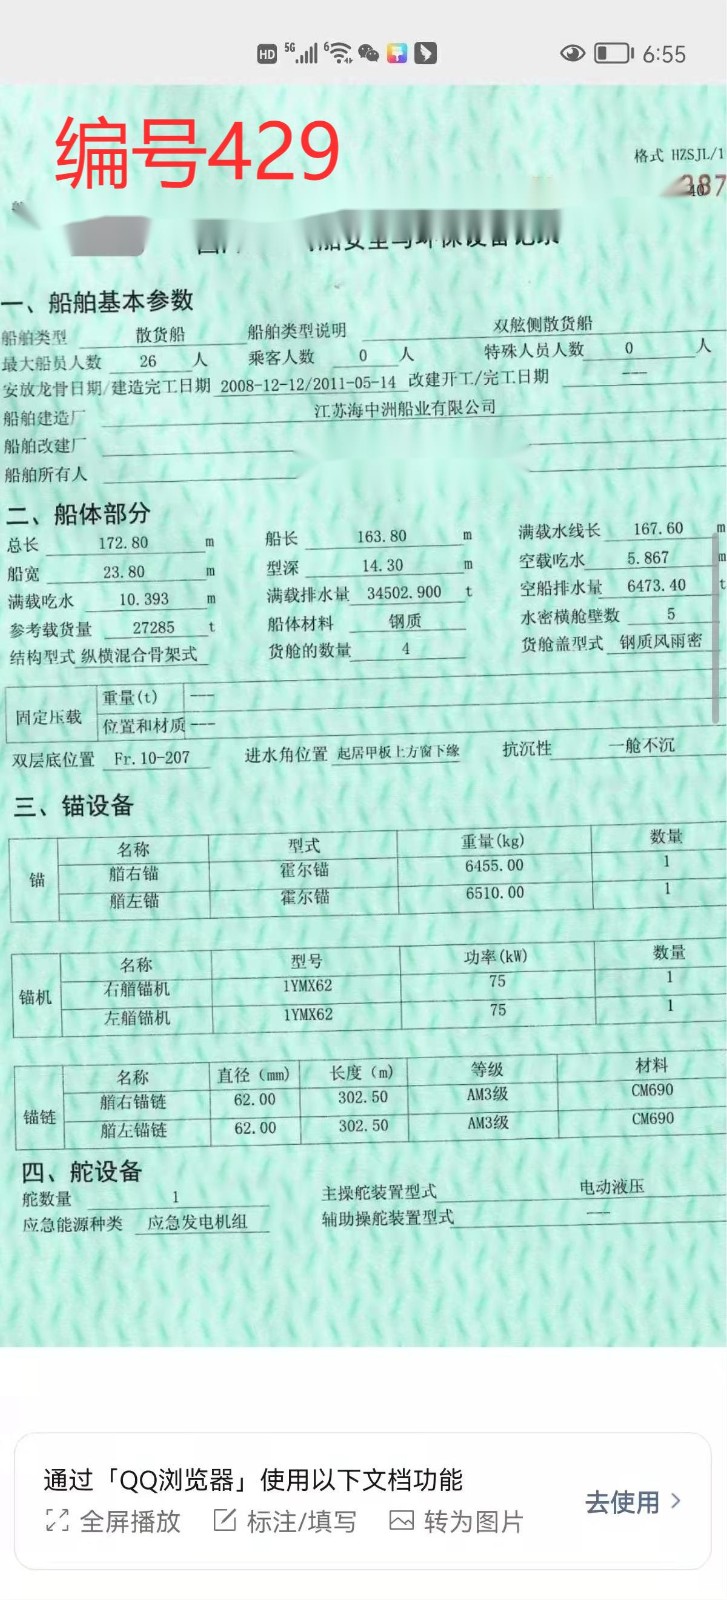 HD 5G 6 6:55
编号429
格式 HZSJL/1
一、船舶基本参数
船舶类型 散货船 船舶类型说明 双舷侧散货船
最大船员人数 26 人 乘客人数 0 人 特殊人员人数 0 人
安放龙骨日期/建造完工日期 2008-12-12/2011-05-14 改建开工/完工日期 ---
船舶建造厂 江苏海中洲船业有限公司
船舶改建厂
船舶所有人
二、船体部分
总长 172.80 m 船长 163.80 m 满载水线长 167.60 m
船宽 23.80 m 型深 14.30 m 空载吃水 5.867 m
满载吃水 10.393 m 满载排水量 34502.900 t 空船排水量 6473.40 t
参考载货量 27285 t 船体材料 钢质 水密横舱壁数 5
结构型式 纵横混合骨架式 货舱的数量 4 货舱盖型式 钢质风雨密
固定压载 重量(t) ---
位置和材质 ---
双层底位置 Fr.10-207 进水角位置 起居甲板上方窗下缘 抗沉性 一舱不沉
三、锚设备
锚 名称 型式 重量(kg) 数量
艏右锚 霍尔锚 6455.00 1
艏左锚 霍尔锚 6510.00 1
锚机 名称 型号 功率(kW) 数量
右艏锚机 1YMX62 75 1
左艏锚机 1YMX62 75 1
锚链 名称 直径（mm） 长度（m） 等级 材料
艏右锚链 62.00 302.50 AM3级 CM690
艏左锚链 62.00 302.50 AM3级 CM690
四、舵设备
舵数量 1 主操舵装置型式 电动液压
应急能源种类 应急发电机组 辅助操舵装置型式 ---
通过「QQ浏览器」使用以下文档功能
全屏播放 标注/填写 转为图片 去使用